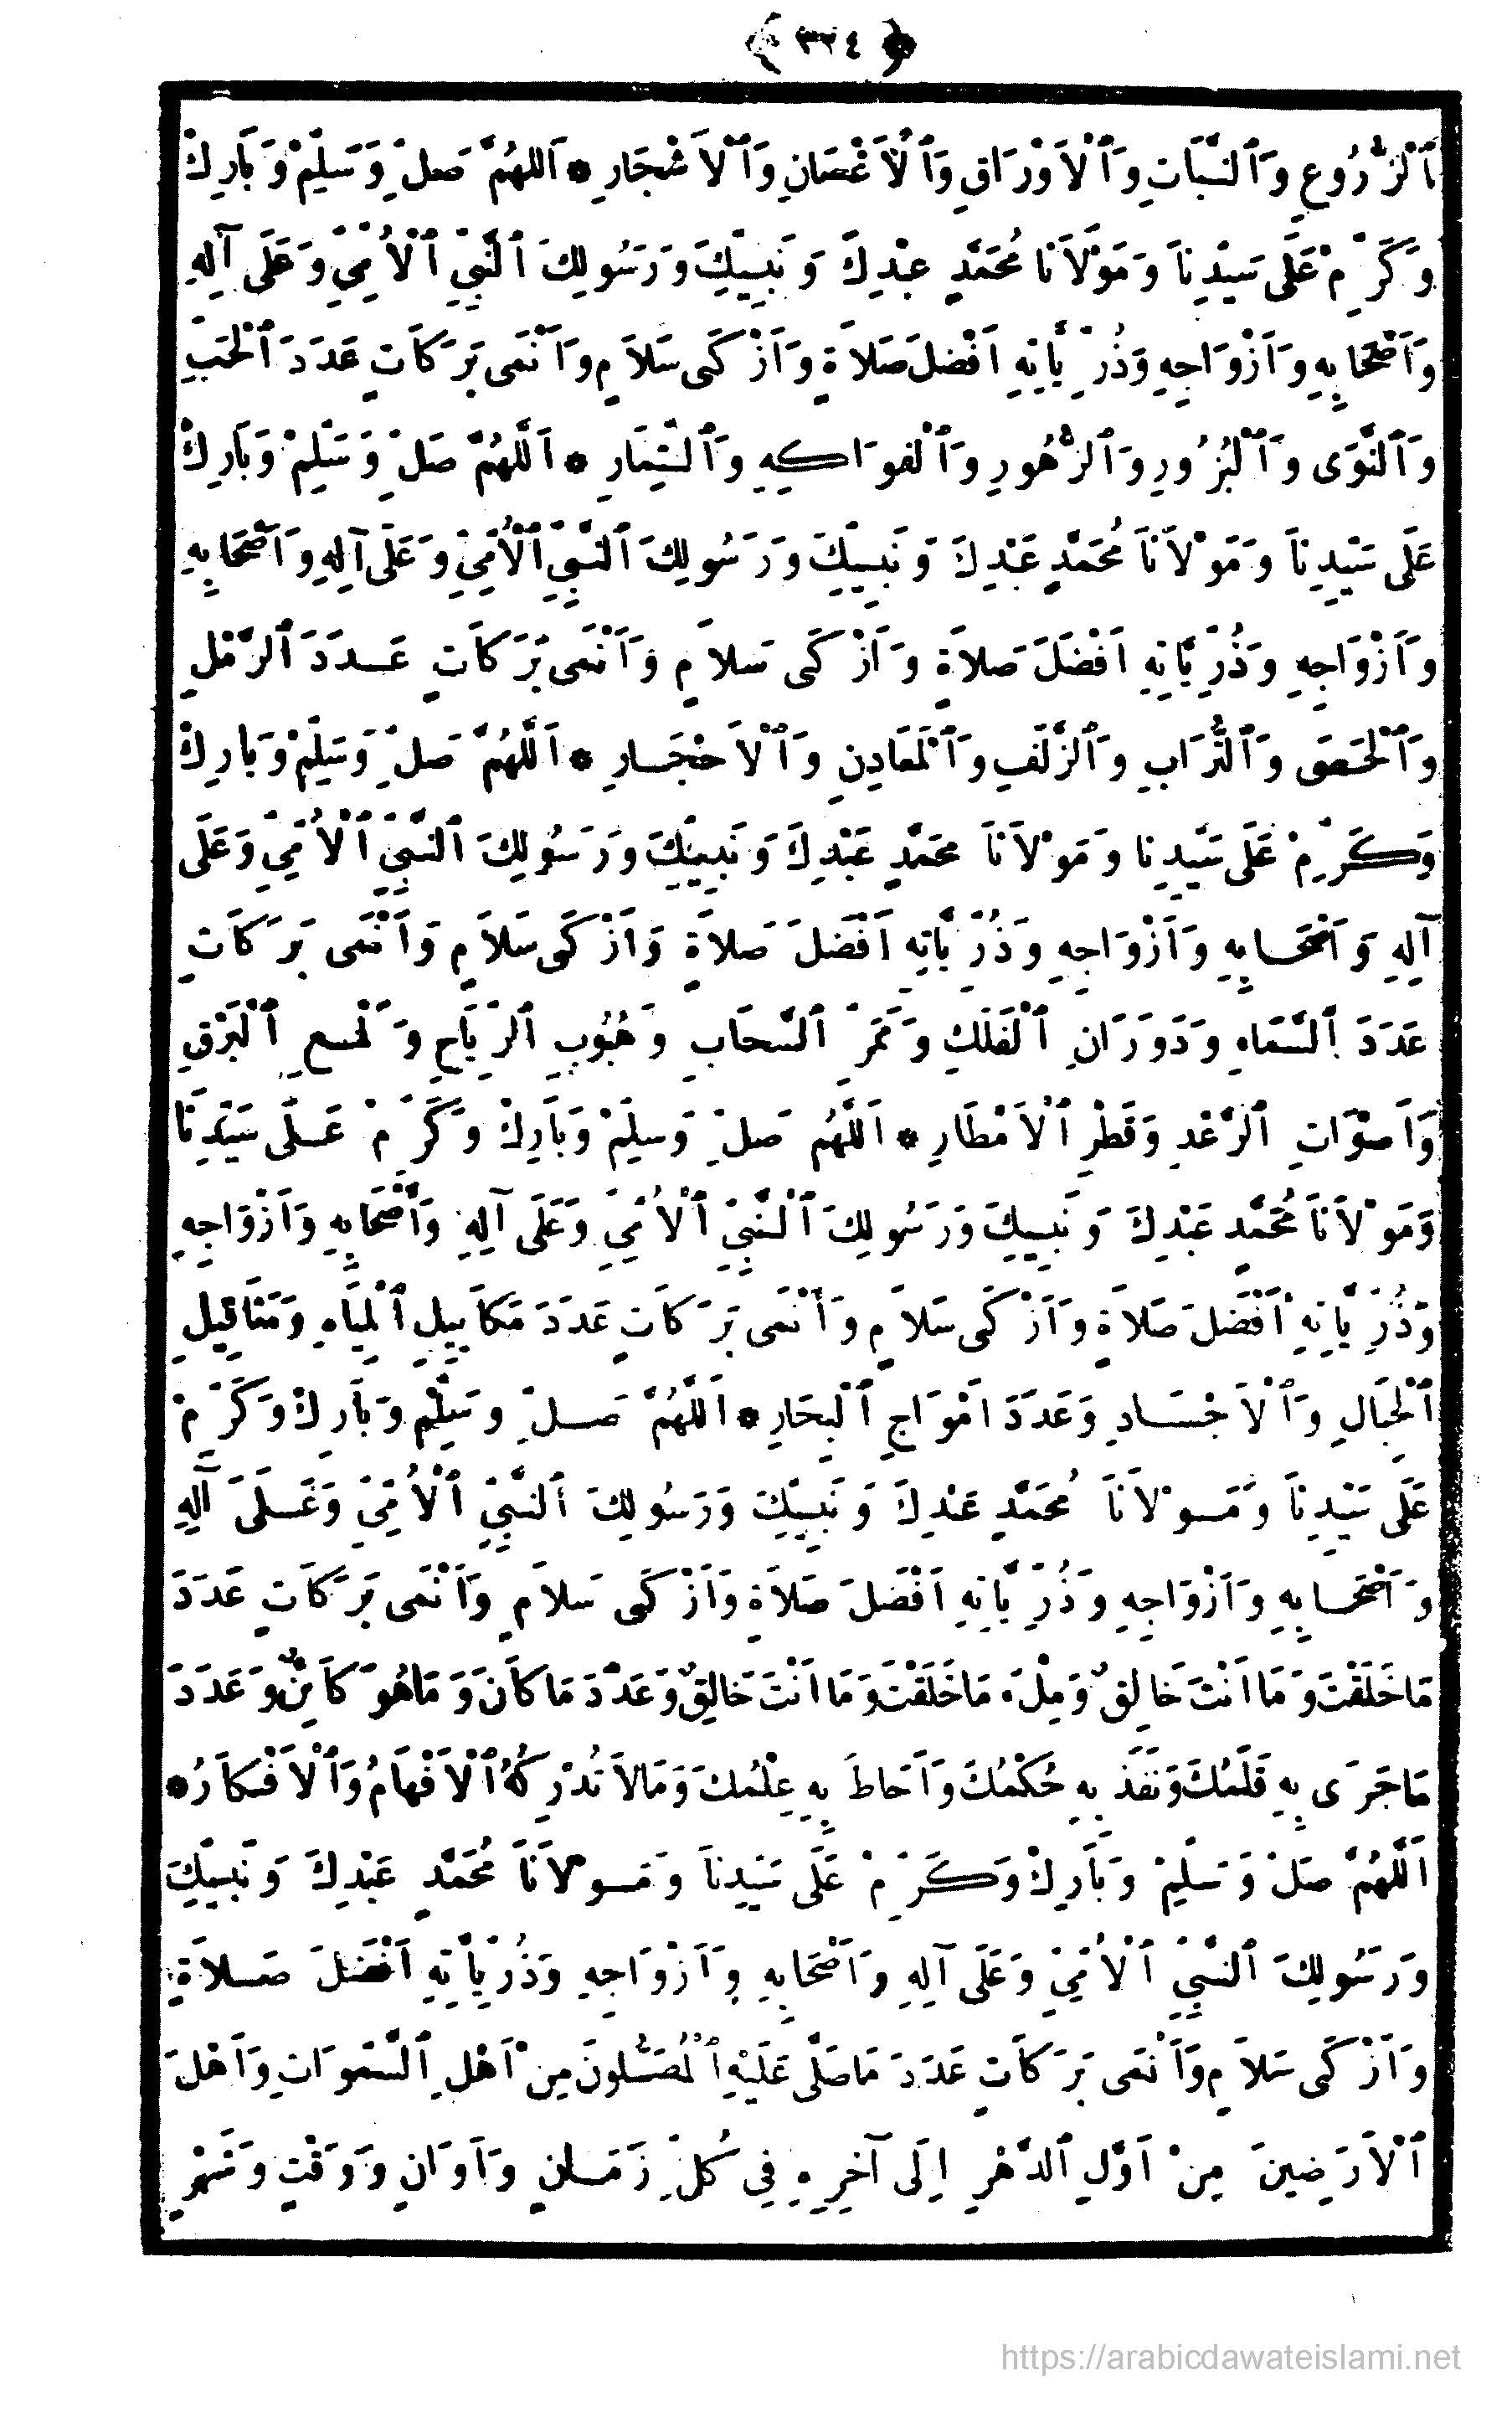 ﴿ ٣٢٤ ﴾
ٱلزُّرُوعِ وَٱلنَّبَاتِ وَٱلْاَوْرَاقِ وَٱلْاَغْصَانِ وَٱلْاَشْجَارِ * اَللّٰهُمَّ صَلِّ وَسَلِّمْ وَبَارِكْ
وَكَرِّمْ عَلَى سَيِّدِنَا وَمَوْلَانَا مُحَمَّدٍ عَبْدِكَ وَنَبِيِّكَ وَرَسُولِكَ ٱلنَّبِيِّ ٱلْاُمِّيِّ وَعَلَى آلِهِ
وَاَصْحَابِهِ وَاَزْوَاجِهِ وَذُرِّيَّاتِهِ اَفْضَلَ صَلَاةٍ وَاَزْكَى سَلَامٍ وَاَنْمَى بَرَكَاتٍ عَدَدَ ٱلْحَبِّ
وَٱلنَّوَى وَٱلْبُزُورِ وَٱلزُّهُورِ وَٱلْفَوَاكِهِ وَٱلثِّمَارِ * اَللّٰهُمَّ صَلِّ وَسَلِّمْ وَبَارِكْ
عَلَى سَيِّدِنَا وَمَوْلَانَا مُحَمَّدٍ عَبْدِكَ وَنَبِيِّكَ وَرَسُولِكَ ٱلنَّبِيِّ ٱلْاُمِّيِّ وَعَلَى آلِهِ وَاَصْحَابِهِ
وَاَزْوَاجِهِ وَذُرِّيَّاتِهِ اَفْضَلَ صَلَاةٍ وَاَزْكَى سَلَامٍ وَاَنْمَى بَرَكَاتٍ عَدَدَ ٱلرَّمْلِ
وَٱلْحَصَى وَٱلتُّرَابِ وَٱلزَّلَفِ وَٱلْمَعَادِنِ وَٱلْاَحْجَارِ * اَللّٰهُمَّ صَلِّ وَسَلِّمْ وَبَارِكْ
وَكَرِّمْ عَلَى سَيِّدِنَا وَمَوْلَانَا مُحَمَّدٍ عَبْدِكَ وَنَبِيِّكَ وَرَسُولِكَ ٱلنَّبِيِّ ٱلْاُمِّيِّ وَعَلَى
آلِهِ وَاَصْحَابِهِ وَاَزْوَاجِهِ وَذُرِّيَّاتِهِ اَفْضَلَ صَلَاةٍ وَاَزْكَى سَلَامٍ وَاَنْمَى بَرَكَاتٍ
عَدَدَ ٱلسَّمَاءِ وَدَوَرَانِ ٱلْفَلَكِ وَمَمَرِّ ٱلسَّحَابِ وَهُبُوبِ ٱلرِّيَاحِ وَلَمْعِ ٱلْبَرْقِ
وَاَصْوَاتِ ٱلرَّعْدِ وَقَطْرِ ٱلْاَمْطَارِ * اَللّٰهُمَّ صَلِّ وَسَلِّمْ وَبَارِكْ وَكَرِّمْ عَلَى سَيِّدِنَا
وَمَوْلَانَا مُحَمَّدٍ عَبْدِكَ وَنَبِيِّكَ وَرَسُولِكَ ٱلنَّبِيِّ ٱلْاُمِّيِّ وَعَلَى آلِهِ وَاَصْحَابِهِ وَاَزْوَاجِهِ
وَذُرِّيَّاتِهِ اَفْضَلَ صَلَاةٍ وَاَزْكَى سَلَامٍ وَأَنْمَى بَرَكَاتٍ عَدَدَ مَكَايِيلِ ٱلْمِيَاهِ وَمَثَاقِيلِ
ٱلْجِبَالِ وَٱلْاَجْسَادِ وَعَدَدَ اَمْوَاجِ ٱلْبِحَارِ * اَللّٰهُمَّ صَلِّ وَسَلِّمْ وَبَارِكْ وَكَرِّمْ
عَلَى سَيِّدِنَا وَمَوْلَانَا مُحَمَّدٍ عَبْدِكَ وَنَبِيِّكَ وَرَسُولِكَ ٱلنَّبِيِّ ٱلْاُمِّيِّ وَعَلَى آلِهِ
وَاَصْحَابِهِ وَاَزْوَاجِهِ وَذُرِّيَّاتِهِ اَفْضَلَ صَلَاةٍ وَاَزْكَى سَلَامٍ وَاَنْمَى بَرَكَاتٍ عَدَدَ
مَاخَلَقْتَ وَمَا اَنْتَ خَالِقٌ وَمِلْءَ مَاخَلَقْتَ وَمَا اَنْتَ خَالِقٌ وَعَدَدَ مَاكَانَ وَمَاهُوَ كَائِنٌ وَعَدَدَ
مَاجَرَى بِهِ قَلَمُكَ وَنَفَذَ بِهِ حُكْمُكَ وَاَحَاطَ بِهِ عِلْمُكَ وَمَالَا تُدْرِكُهُ ٱلْاَفْهَامُ وَٱلْاَفْكَارُ *
اَللّٰهُمَّ صَلِّ وَسَلِّمْ وَبَارِكْ وَكَرِّمْ عَلَى سَيِّدِنَا وَمَوْلَانَا مُحَمَّدٍ عَبْدِكَ وَنَبِيِّكَ
وَرَسُولِكَ ٱلنَّبِيِّ ٱلْاُمِّيِّ وَعَلَى آلِهِ وَاَصْحَابِهِ وَاَزْوَاجِهِ وَذُرِّيَّاتِهِ اَفْضَلَ صَلَاةٍ
وَاَزْكَى سَلَامٍ وَاَنْمَى بَرَكَاتٍ عَدَدَ مَاصَلَّى عَلَيْهِ ٱلْمُصَلُّونَ مِنْ اَهْلِ ٱلسَّمَوَاتِ وَاَهْلِ
ٱلْاَرَضِينَ مِنْ اَوَّلِ ٱلدَّهْرِ اِلَى آخِرِهِ فِي كُلِّ زَمَانٍ وَاَوَانٍ وَوَقْتٍ وَشَهْرٍ
https://arabicdawateislami.net